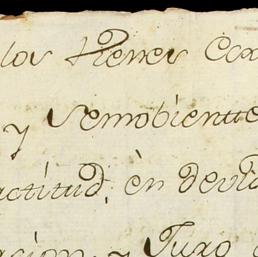 los vienes Cax
y Semobiente
actitud, èn devid
acion, y Juro